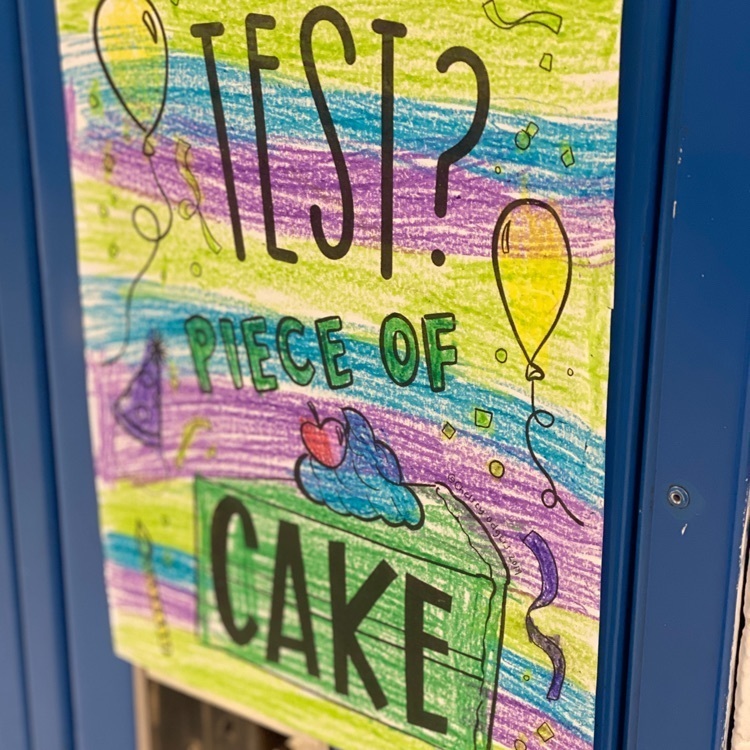 TEST?
PIECE OF
CAKE